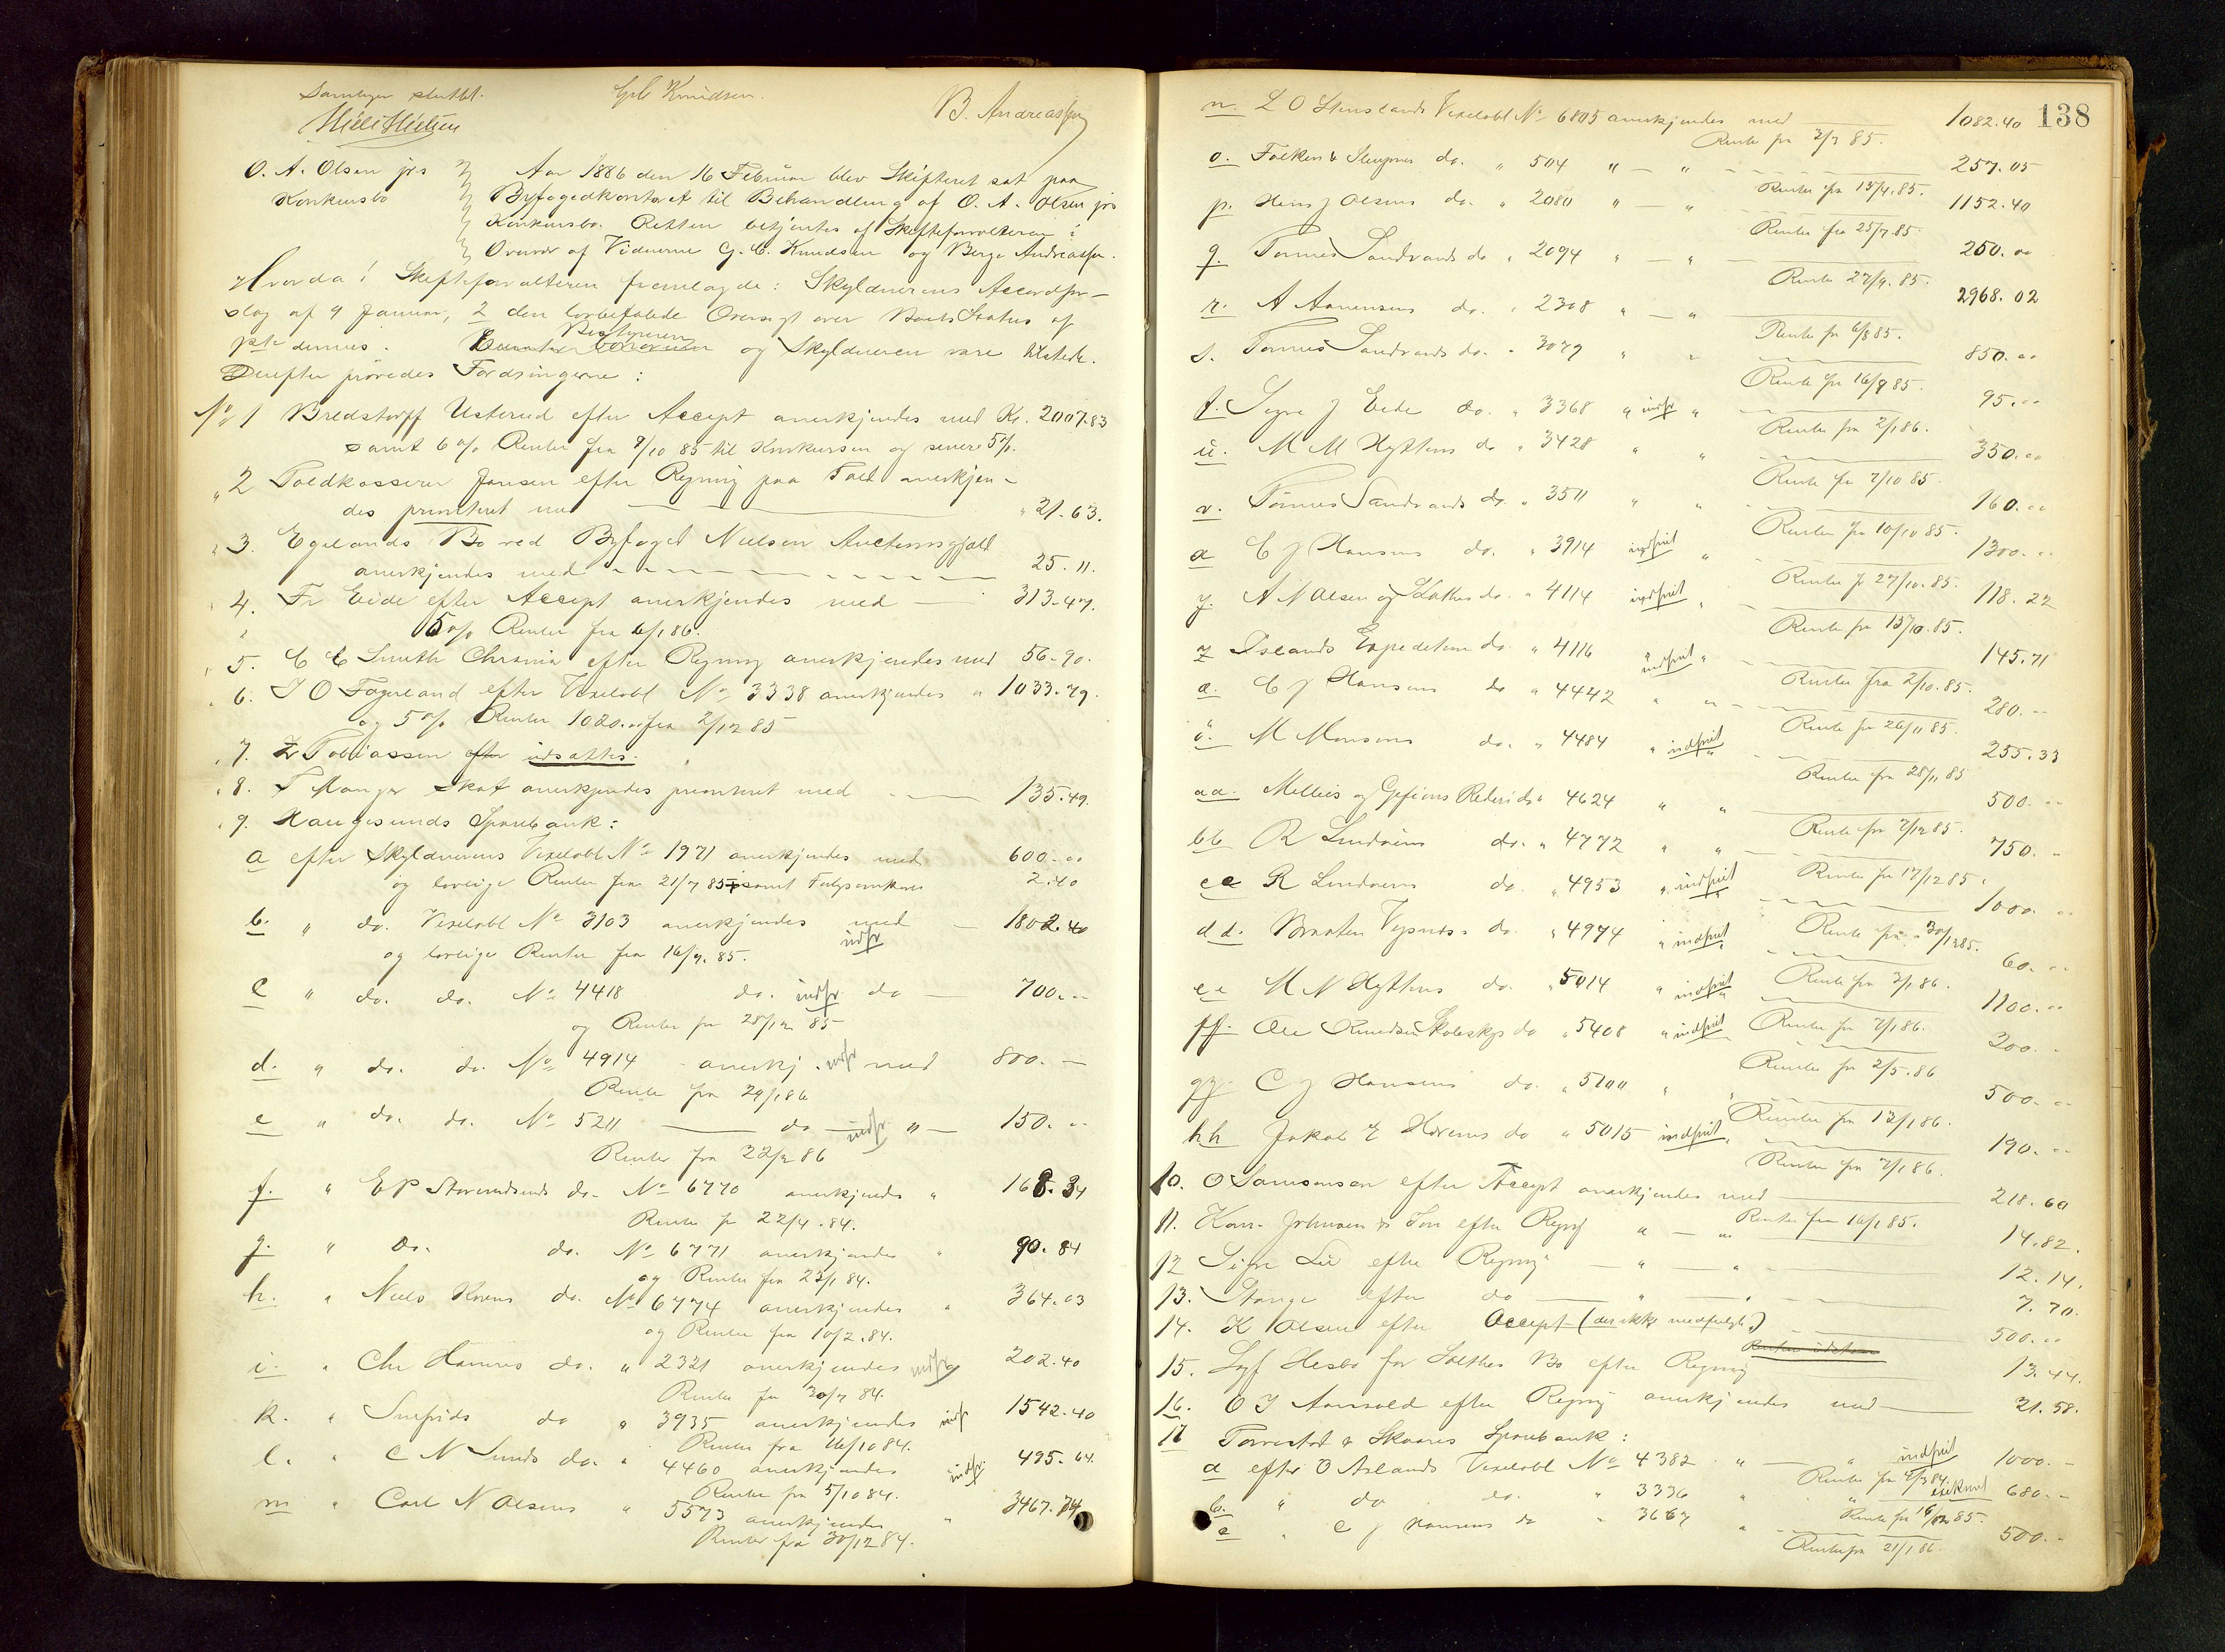 Samlingen sluttet.
G. C. Knudsen. B. Andreassen
O. A. Olsen jrs Konkursbo
Aar 1886 den 16 Februar blev Skifteret sat paa
Byfogedkontoret til Behandling af O. A. Olsen jrs
Konkursbo. Retten betjentes af Skifteforvalteren i
Overvær af Vidnerne G. C. Knudsen og Berge Andreassen.
Hvorda! Skifteforvalteren fremlagde: Skyldnerens Accordfor-
slag af 9 Januar, 2 den lovbefalede Oversigt over Boets Status af
pto dennes. Bestyreren og Skyldneren vare tilstede.
Derefter prøvedes Fordringerne:
No 1 Bredstorff Usterud efter Accept anerkjendes med Kr. 2007.83
samt 6 % Renter fra 9/10 85 til Konkursen og senere 5 %.
" 2 Toldkasserer Jansen efter Regning paa Told anerkjen-
des prioriteret med " 21.63.
" 3. Egelands Bo ved Byfoged Nielsen Auctionsgjæld
anerkjendes med 25.11.
" 4. Fr Eide efter Accept anerkjendes med 313.47.
5 % Renter fra 6/1 86.
" 5. C C Smith Chrania efter Regning anerkjendes med 56.90.
" 6. J O Fageland efter Vexelobl No 3338 anerkjendes " 1033.79.
og 5 % Renter 1020.00 fra 2/12 85
" 7. Z Tobiassen efter udsattes.
" 8. T Manger Skat anerkjendes prioriteret med 135.49.
" 9. Haugesunds Sparebank:
a efter Skyldnerens Vexelobl No 1971 anerkjendes med 600.00
og lovlige Renter fra 21/7 85 samt 2.40
b. " do. Vexelobl No 3103 anerkjendes med 1802.40
indfr
og lovlige Renter fra 16/9. 85.
c " do. do. No 4418 do. indfr do 700.00
og Renter fra 28/12 85
d. " do. do. No 4914 anerkj. indfr med 800.—
Renter fra 29/1 86
e " do. do. No 5211 do indfr " 150.00
Renter fra 22/2 86
f. " E P do. No 6770 anerkjendes " 168.34
Renter fr 22/4. 84.
g. " Do. do. No 6771 anerkjendes " 90.84
og Renter fra 23/1 84.
h. " Niels do. No 6774 anerkjendes " 364.03
og Renter fra 10/2. 84.
i. " Chr Hannes do. " 2321 anerkjendes indfr 202.40
Renter fra 30/7 84.
k. " Snefrids do " 3935 anerkjendes indfr 1542.40
Renter fra 16/10 84.
l. " C N Lunds do. " 4460 anerkjendes indfr. 495.64.
Renter fra 5/10 84.
m " Carl N Olsens " 5573 anerkjendes " 3467.74
Renter fra 30/12 84.
138
n. L O Stenslands Vexelobl No 6805 anerkjendes med 1082.40
Renter fra 3/3 85.
o. Falken & do. " 504 " — " 257.05
Renter fra 15/4. 85.
p. Hans J Olsens do. " 2080 " — " 1152.40
Renter fra 25/7. 85.
q. Tønnes Sandvands do " 2094 " — " 250.00
Renter 27/9. 85.
r. A Aanensens do. " 2308 " — " 2968.02
Renter fra 6/8 85.
s. Tønnes Sandvands do. " 3079 " " 850.00
Renter fra 16/9 85.
t. Sigre J Eide do. " 3368 " indfr " 95.00
Renter fra 2/1 86.
u. M M Hyttens do " 3428 " " 350.00
Renter fra 7/10 85.
v. Tønnes Sandvands do. " 3511 " " 160.00
Renter fra 10/10 85.
x C J Hansens do. " 3914 indfriet " 1300.00
Renter fr 27/10. 85.
y. A N Olsen og do. " 4114 indfriet " 118.22
Renter fra 15/10. 85.
z Islands Expedetion do. " 4116 " " 145.71
indfriet
Renter fra 2/10. 85.
æ. C J Hansens do " 4442 " " 280.—
Renter fra 26/11 85.
ö. M Monsens do. " 4484 " indfriet 255.33
Renter fra 28/11 85
aa. Mellies og Gefions Rederi do " 4624 " " 500.00
Renter fra 7/12 85.
bb R Lindøens do. " 4772 " " 750.—
Renter fra 17/12 85.
cc R Lindøens do. " 4953 " indfriet 1000.00
Renter fra 30/12 85.
dd. Braaten Vigsnæs do. " 4974 " indfriet 60.00
Renter fra 3/1 86.
ee M N Hyttens do. " 5014 " indfriet 1100.00
Renter fra 7/1 86.
ff. Ole Knudsen do " 5408 " indfriet 300.—
Renter fra 2/5. 86
gg. C J Hansens do. " 5100 " " 500.00
Renter fra 13/1 86.
hh Jakob E do " 5015 indfriet. 190.00
Renter fra 7/1 86.
10. O Samsonsen efter Accept anerkjendes med 218.60
Renter fra 16/1 85.
11. Johnsen & Søn efter Regng " — " 14.82.
12 Sigre Lie efter Regning — " — " 12.14.
13. Stange efter do — " — " 7.70.
14. K Olsen efter Accept (der ikke medfulgte) 500.00
15. Hesbø for Bo efter Regning 13.44.
16. O J Aanvold efter Regning anerkjendes med 21.58.
17 Torvestad & Skaares Sparebank:
a efter O Aslands Vexelobl No 4382 " — " indfriet 1000.—
Renter fra 4/3 84.
b. " do do. " 3336 " " 680.—
Renter fra 16/12 85.
c " C J Hansens do " 3667 " 500.—
Renter fra 21/1 86.